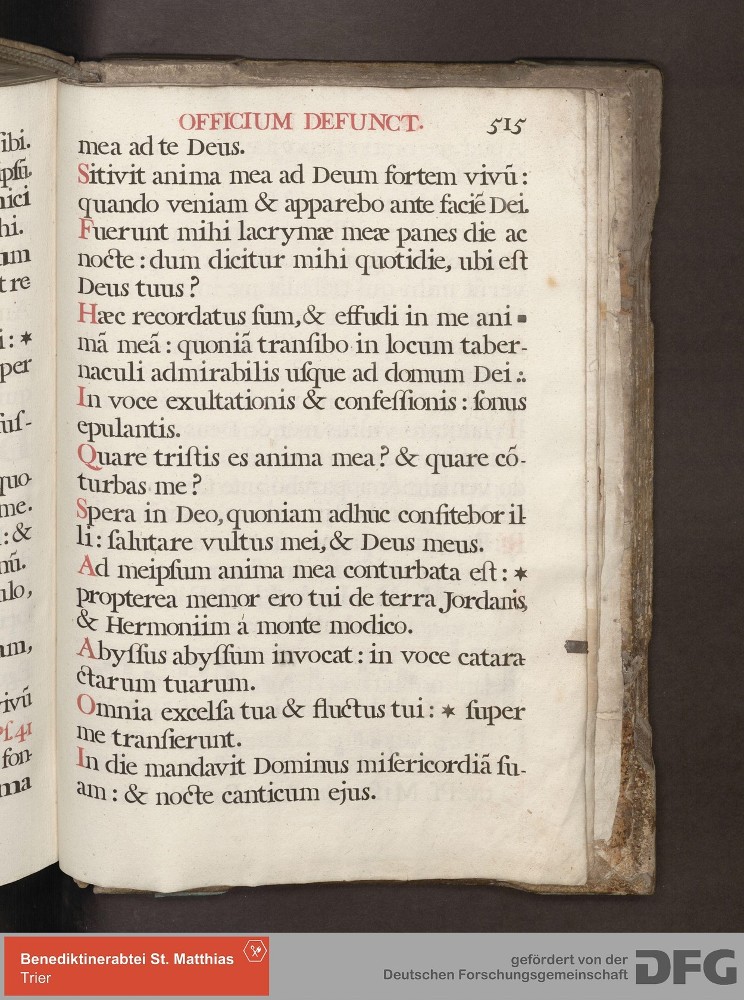 ibi.
ipsũ.
nici
hi.
um
t re
i: *
per
ſuſ-
quo-
me.
: &
nũ.
ulo,
am,
vivũ
Pſ. 41
fon-
ma
OFFICIUM DEFUNCT. 515
mea ad te Deus.
Sitivit anima mea ad Deum fortem vivũ:
quando veniam & apparebo ante faciẽ Dei.
Fuerunt mihi lacrymæ meæ panes die ac
nocte: dum dicitur mihi quotidie, ubi eſt
Deus tuus?
Hæc recordatus ſum, & effudi in me ani-
mã meã: quoniã tranſibo in locum taber-
naculi admirabilis uſque ad domum Dei :.
In voce exultationis & confeſſionis: ſonus
epulantis.
Quare triſtis es anima mea? & quare cõ-
turbas me?
Spera in Deo, quoniam adhuc confitebor il-
li: ſalutare vultus mei, & Deus meus.
Ad meipſum anima mea conturbata eſt: *
propterea memor ero tui de terra Jordanis,
& Hermoniim á monte modico.
Abyſſus abyſſum invocat: in voce catara-
ctarum tuarum.
Omnia excelſa tua & fluctus tui: * ſuper
me tranſierunt.
In die mandavit Dominus miſericordiã ſu-
am: & nocte canticum ejus.
Benediktinerabtei St. Matthias
Trier
gefördert von der
Deutschen Forschungsgemeinschaft
DFG